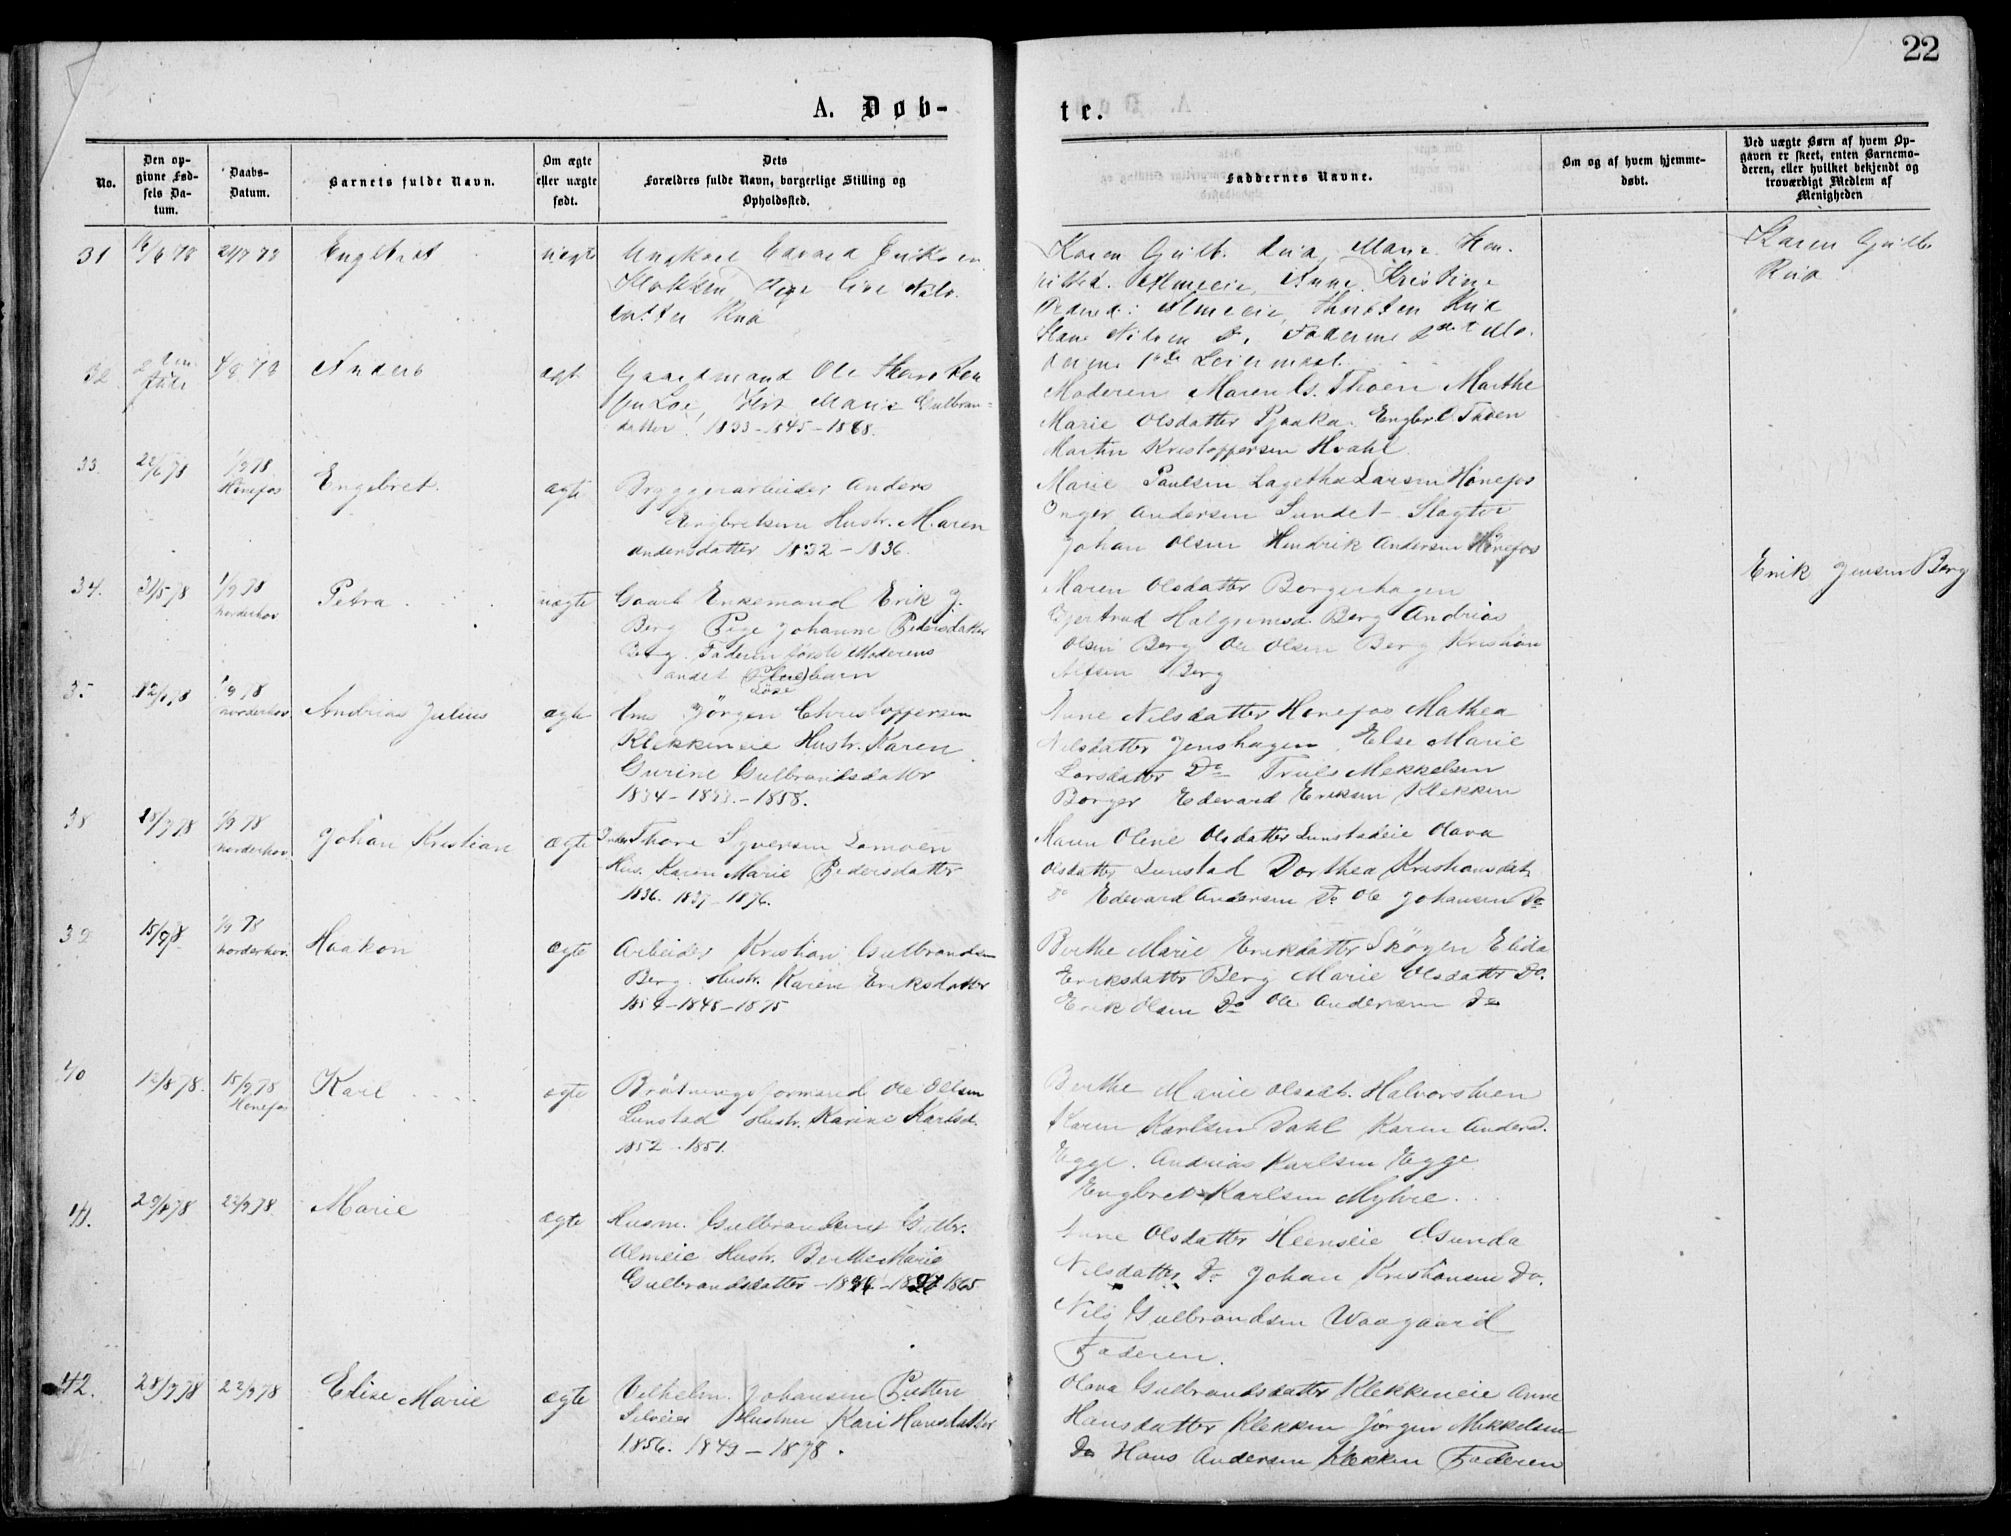 22
A. Døb-
te.
No.
Den op-
givne Fød-
sels Da-
tum.
Daabs-
Datum.
Barnets fulde Navn.
Om ægte
eller uægte
født.
Dets
Forældres fulde Navn, borgerlige Stilling og
Opholdssted.
Faddernes Navne.
Om og af hvem hjemme-
døbt.
Ved uægte Børn af hvem Op-
gaven er skeet, enten Barnemo-
deren, eller hvilket bekjendt og
troværdigt Medlem af
Menigheden
31
Engebret
uægte
Ungkarl Edvard Eriksen
Klekken Pige Live
datter Rua
Karen Gulb. Rua, Marie
Almeie, Anne Kristine
Almeie, Thorsten Rua
Hans Nilsen
Leiermaal.
Karen Gulb.
Rua
32
Anders
ægt
Gaardmand Ole Thorsten
Marie Gulbran-
datter. 1833-1845-1868.
Moderen Maren G. Thoen Marthe
Marie Olsdatter Pjaaka. Engbret
Martin Kristoffersen Hvahl.
33.
22/6 78
1/9 78
Hønefos
Engebret.
ægte
Bryggeriarbeider Anders
Engbretsen Hustr. Maren
Andersdatter 1832-1836.
Marie Paulsen Lagetha Larsen Hønefos
Inger Andersen Sundet Slagter
Johan Olsen Hendrik Andersen Hønefos
34.
31/5 78
1/9 78
Norderhov
Petra
uægte
Gaardb Enkemand Erik J.
Berg Pige Johanne Pedersdatter
Berg. Faderen første Moderens
andet barn
Løse
Maren Olsdatter Borgerhagen
Gjertrud Halgrimsd. Berg Andrias
Olsen Berg Ole Olsen Berg Kristian
Nilsen Berg
Erik Jensen Berg
35
78
1/9 78
Norderhov
Andrias Julius
ægte
Jørgen Christoffersen
Klekkeneie Hustr. Karen
Gurine Gulbrandsdatter
1834-1833.-1858.
Anne Nilsdatter Hønefos Mathea
Nilsdatter Jenshagen, Else Marie
Larsdatter Do Truls Mekkelsen
Borger Edevard Eriksen Klekken
38
28/7 78
1/9 78
Norderhov
Johan Kristian
ægte
Inder Thore Syversen Lamoen
Hus. Karen Marie Pedersdatter
1836. 1837-1876.
Maren Oline Olsdatter Lunstadeie Olava
Olsdatter Lunstad Dorthea Kristiansdat.
Do Edevard Andersen Do Ole Johansen Do
39
15/ 78
1/9 78
Norderhov.
Haakon
ægte
Arbeider Kristian Gulbrandsen
Berg. Hustr. Karen Eriksdatter
1854-1848-1875
Berthe Marie Eriksdatter Skøgen Elida
Eriksdatter Berg Marie Olsdatter Do.
Erik Olsen Do Ole Andersen Do
40
12/8 78.
15/9 78
Hønefos
Karl
ægte
Brøtningsformand Ole Olsen
Lunstad Hustr. Karine Karlsd.
1852-1851.
Berthe Marie Olsdat. Halvorstuen
Maren Karlsen Dahl Karen Anders.
Egge. Andrias Karlsen Egge
Engbret Karlsen Mylvie.
41.
29/ 78
22/9 78.
Marie
ægte
Husm. Gulbrand Gulbr.
Almeie Hustr. Berthe Marie
Gulbrandsdatter 1865
Anne Olsdatter Heenseie Asunda
Nilsdatter Do Johan Kristiansen Do.
Nils Gulbrandsen Waagaard
Faderen.
42.
28/7 78
22/9 78
Elise Marie
ægte
Vilhelm Johansen Putten
Selveier Hustru Kari Hansdatter
1856. 1849-1878.
Olava Gulbrandsdatter Klekkeneie Anne
Hansdatter Klekken Jørgen Mikkelsen
Do Hans Andersen Klekken Faderen